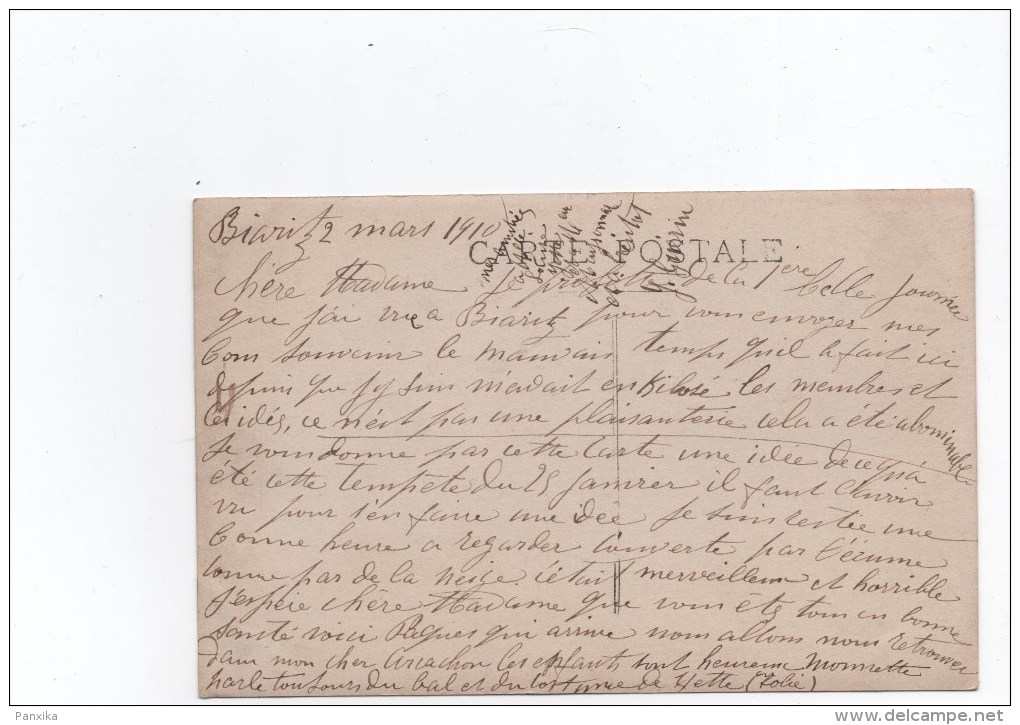 Biaritz 2 mars 1910
CARTE POSTALE
chère Madame Je profite de la 1ère belle journée
que j'ai vue a Biaritz pour vous envoyer mes
bons souvenir le mauvais temps qu'il a fait ici
depuis que j'y suis m'avait les membres et
les idés, ce n'est pas une plaisanterie cela a été abominable
Je vous donne par cette carte une idée de ce qu'a
été cette tempete du 25 janvier il faut l'avoir
vu pour s'en faire une idée Je suis restée une
bonne heure a regarder couverte par l'écume
comme par de la neige c'était merveilleux et horrible
J'espère chère Madame que vous étes tous en bonne
santé voici Pâques qui arrive nous allons nous retrouver
dans mon cher Arcachon les enfants sont heureux Monnette
parle toujours du bal et du costume de (Folie)
Panxika
www.delcampe.net